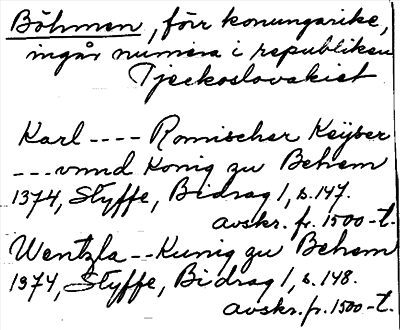 Böhmen, förr konungarike,
ingår numera i republiken
Tjeckoslovakiet
Karl ---- Romischer Keÿser
--- vnnd Konig zu Behem
1374, Styffe, Bidrag 1, s. 147.
avskr. fr. 1500-t.
Wentzla -- Kunig zu Behem
1374, Styffe, Bidrag 1, s. 148.
avskr. fr. 1500-t.